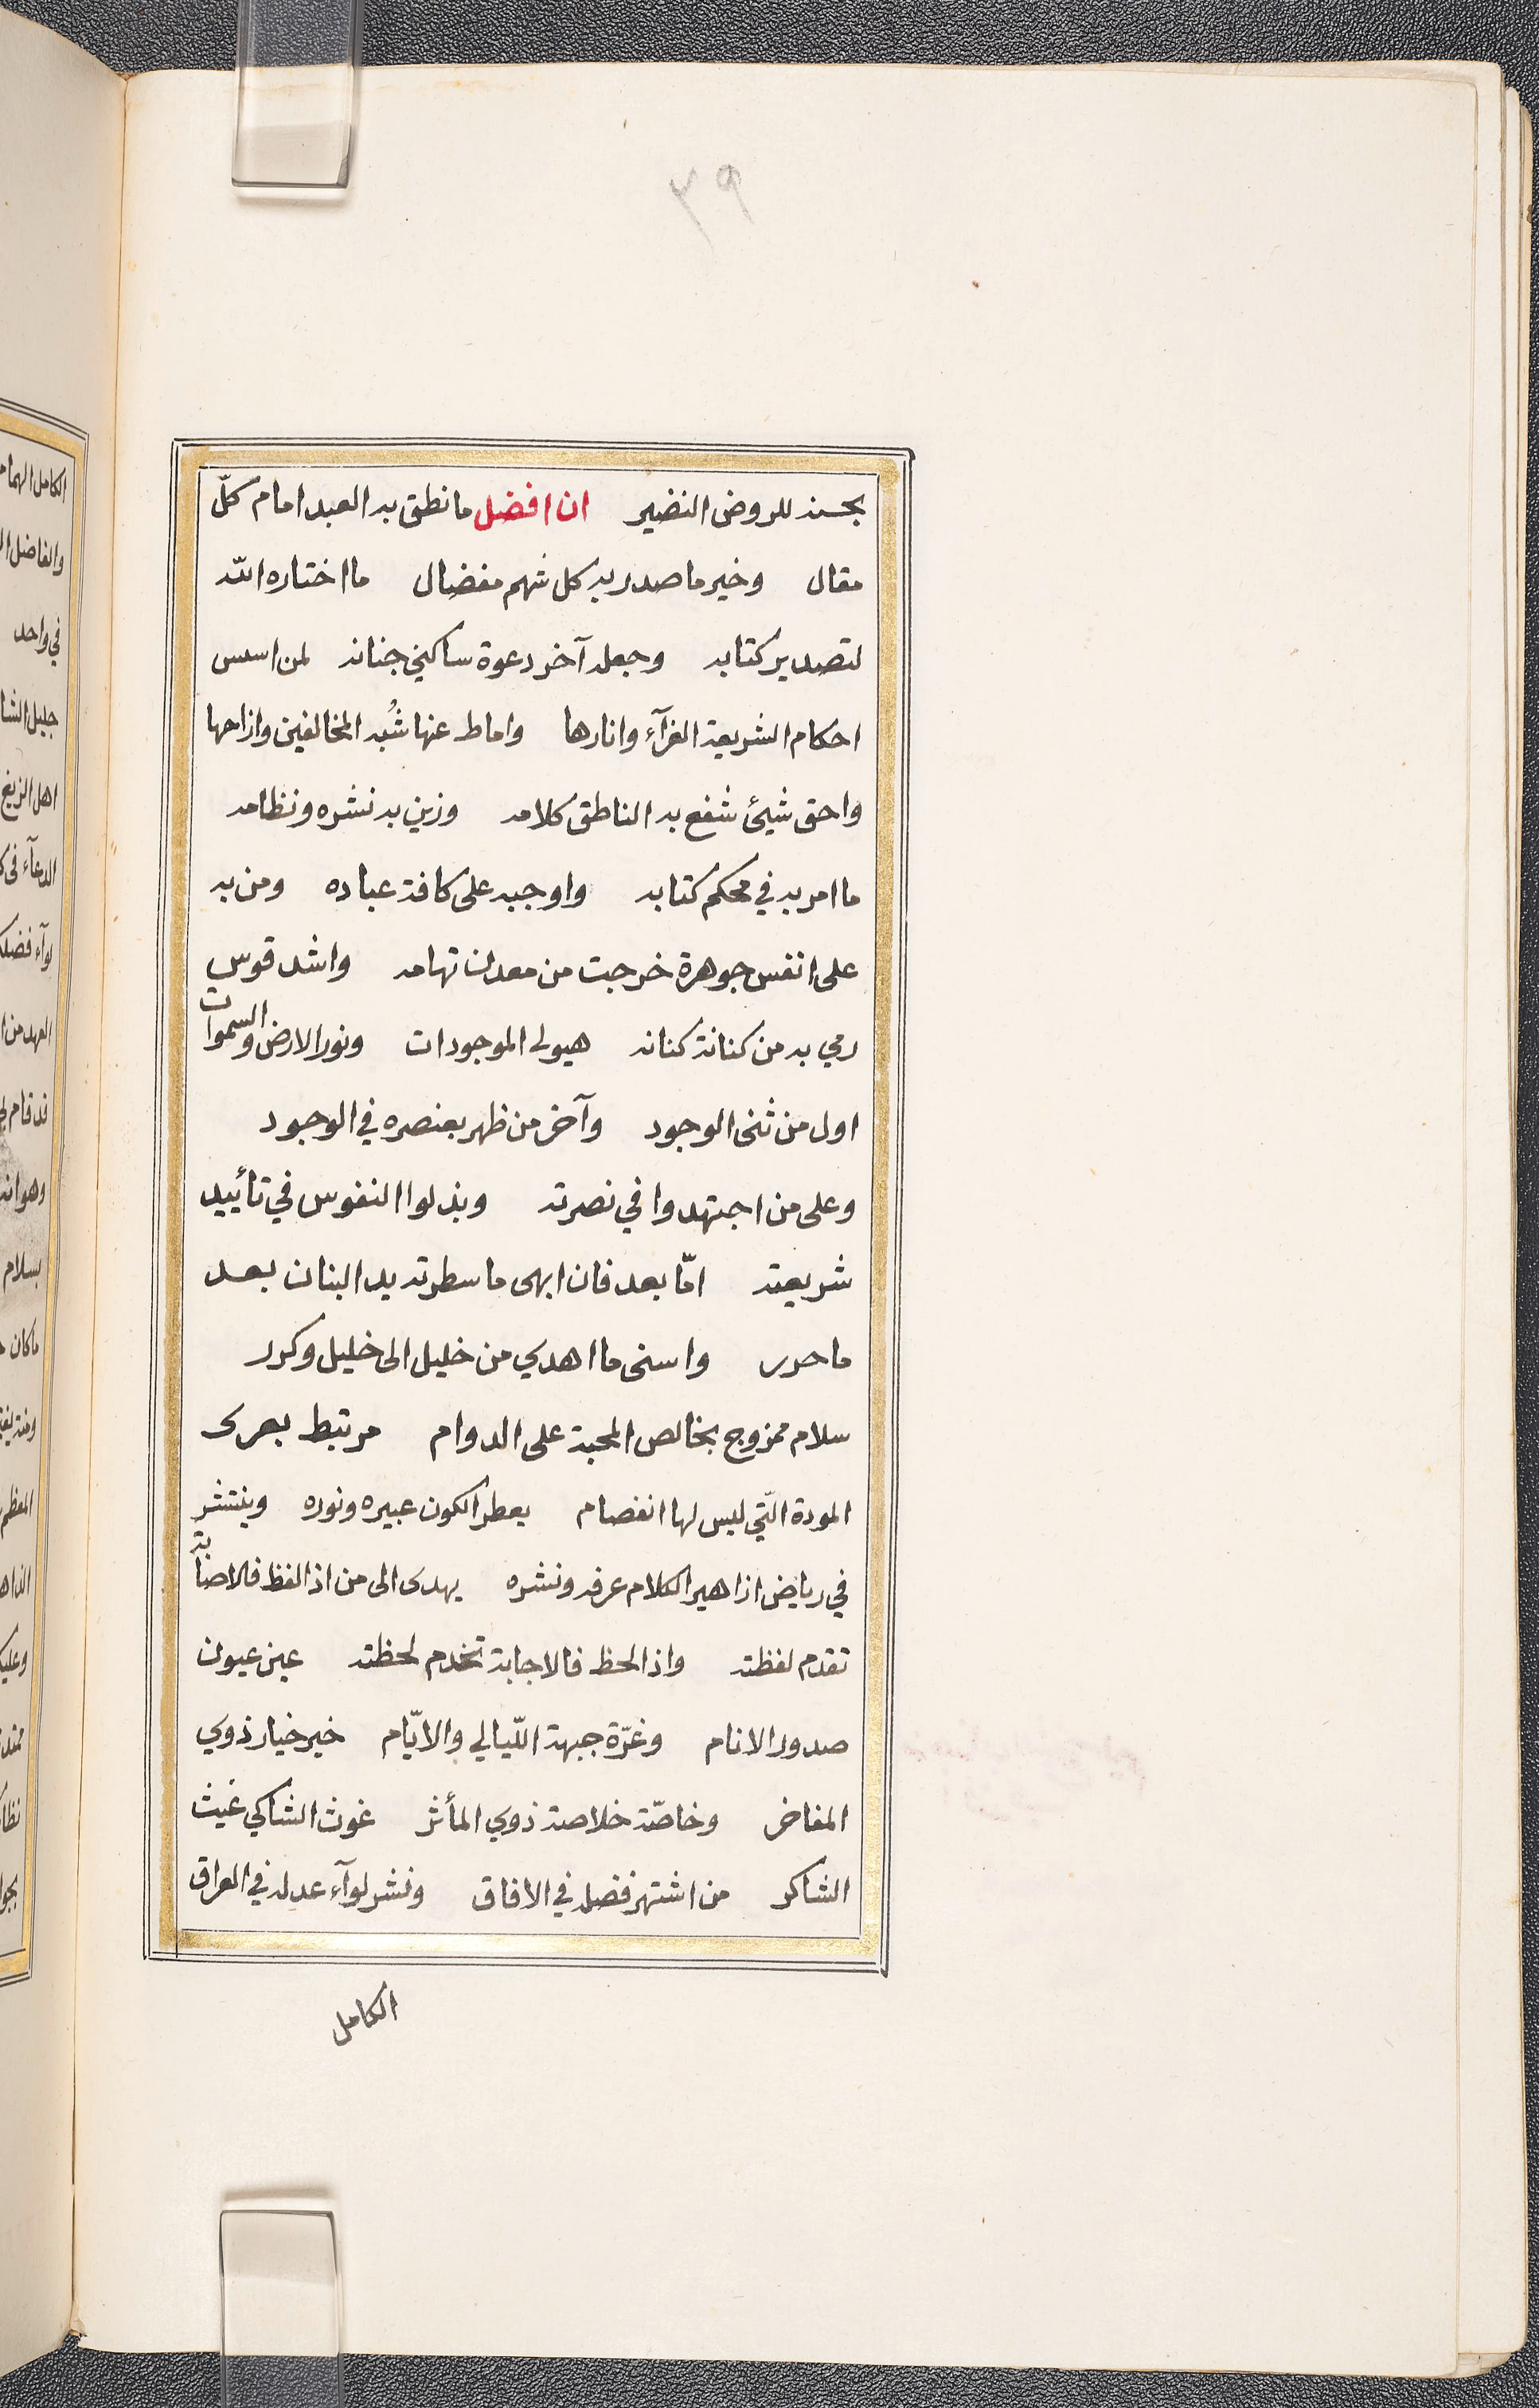 ٣٩
بحسنه للروض النضير ان افضل ما نطق به العبد امام كلّ
مقال وخير ما صدر به كل شهم مفضال ما اختاره الله
لتصدير كتابه وجعله آخر دعوة ساكني جنانه لمن اسس
احكام الشريعة الغرآء وانارها واماط عنها شُبه المخالفين وازاحها
واحق شيئ شفع به الناطق كلامه وزين به نشره ونظامه
ما امر به في محكم كتابه واوجبه على كافة عباده ومن به
على انفس جوهرة خرجت من معدن تهامه واشد قوس
رمي به من كنانة كنانه هيولى الموجودات ونور الارض والسموات
اول من ثنى الوجود وآخر من ظهر بعنصره في الوجود
وعلى من اجتهدوا في نصرته وبذلوا النفوس في تأييد
شريعته امّا بعد فان ابهى ما سطرته يد البنان بعد
ما حرر واسنى ما اهدي من خليل الى خليل وكرر
سلام ممزوج بخالص المحبة على الدوام مرتبط بعرى
المودة الّتي ليس لها انفصام يعطر الكون عبيره ونوره وينتشر
في رياض ازاهير الكلام عرفه ونشره يهدى الى من اذا لفظ فالاصابة
تقدم لفظته واذا لحظ فالاجابة تخدم لحظته عين عيون
صدور الانام وغرّة جبهة اللّيالي والايّام خير خيار ذوي
المفاخر وخاصّة خلاصة ذوي المأثر غوث الشاكي غيث
الشاكر من اشتهر فضله في الافاق ونشر لوآء عدله في العراق
الكامل
الكامل الهمام
والفاضل
في واحد
جليل
اهل الزيغ
لوآء
العهد من
قد قام
بسلام
ما كان